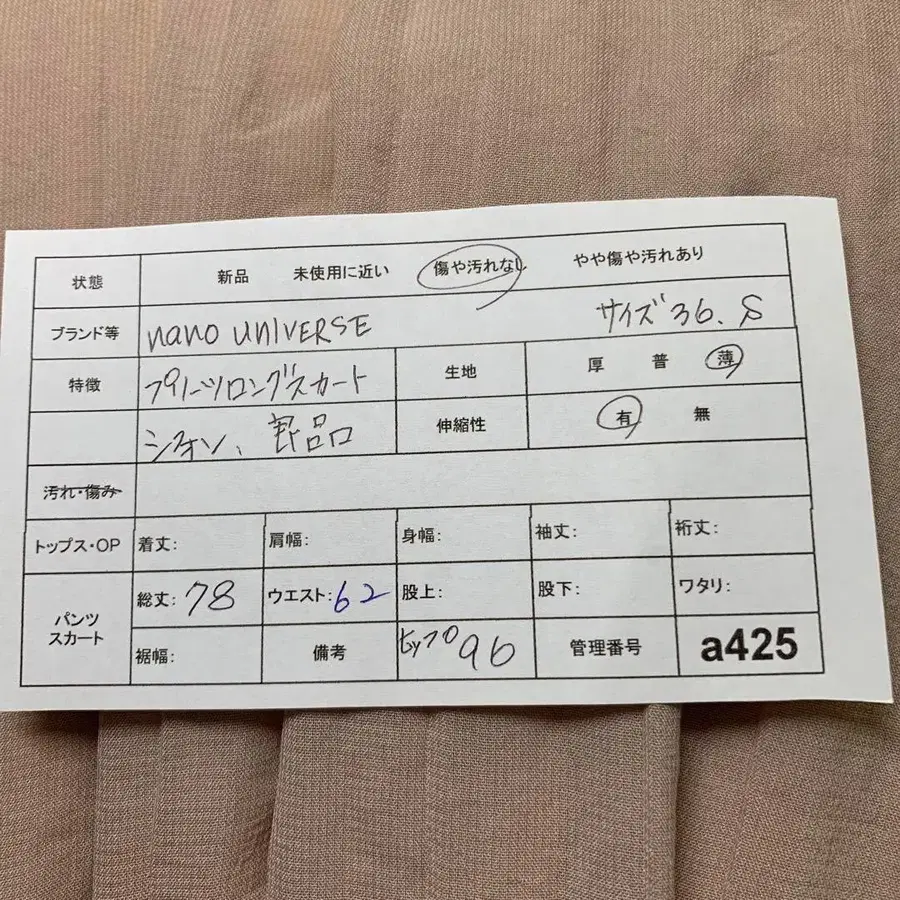 状態 新品 未使用に近い 傷や汚れなし やや傷や汚れあり
ブランド等 nano UNIVERSE サイズ36.S
特徴 プリーツロングスカート 生地 厚 普 薄
シフォン、美品 伸縮性 有 無
汚れ・傷み
トップス・OP 着丈: 肩幅: 身幅: 袖丈: 裄丈:
パンツ スカート 総丈: 78 ウエスト: 62 股上: 股下: ワタリ:
裾幅: 備考 ヒップ96 管理番号 a425